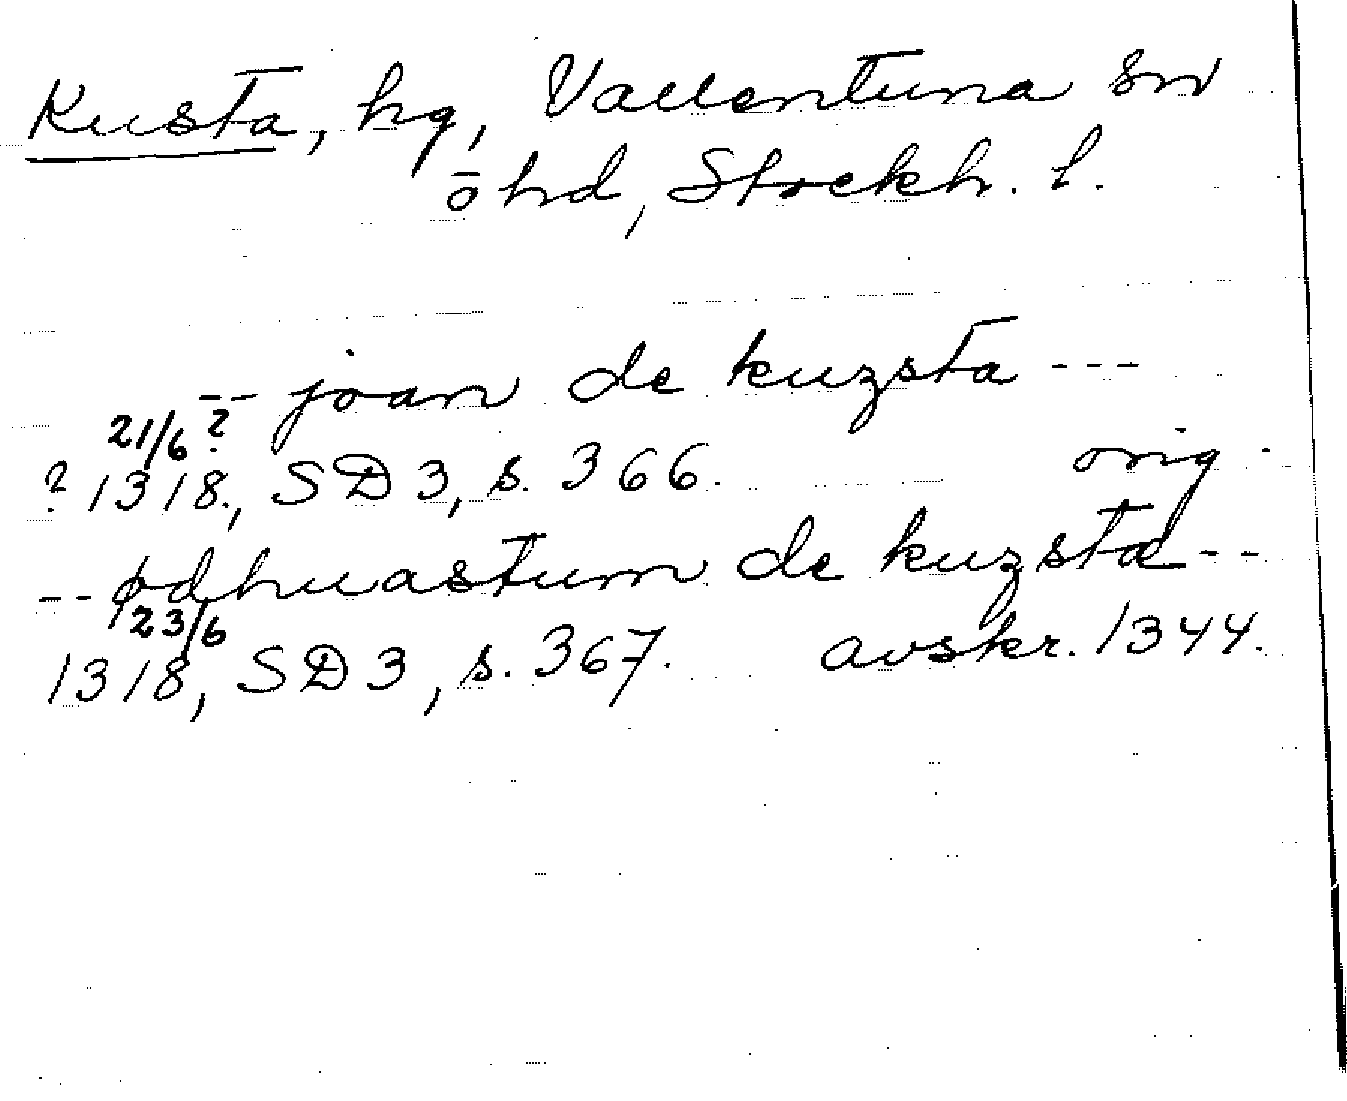 Kusta, hg, Vallentuna sn
öhd, Stockh. l.
-- joan de kuzsta ---
21/6 ?
? 1318, SD 3, s. 366. orig.
-- odhuastum de kuzsta --
23/6
1318, SD 3, s. 367. avskr. 1344.